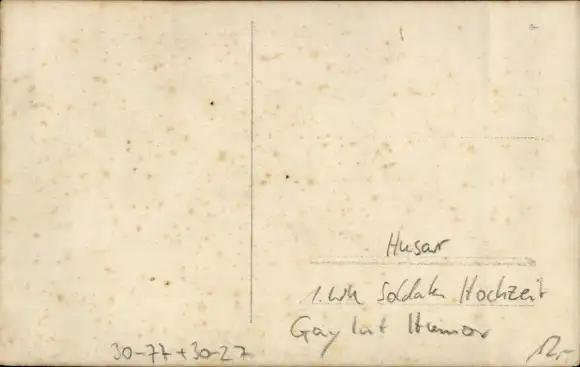 Husar
1. WK Soldaten Hochzeit
Gay Int Humor
30-77+30-27
12,-